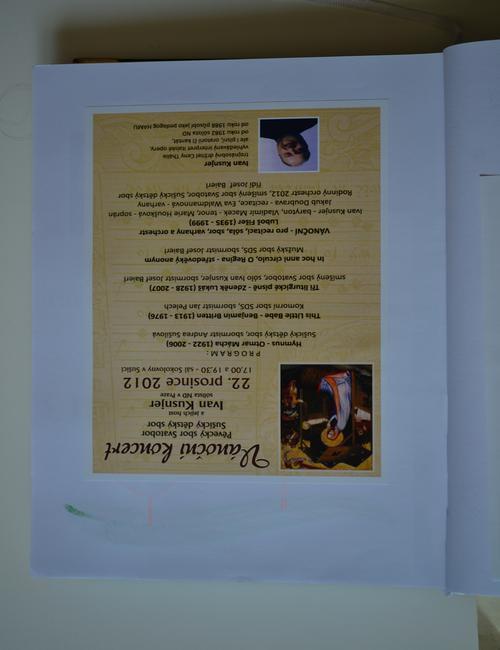 Vánoční koncert
Pěvecký sbor Svatobor
Sušický dětský sbor
a jejich host
Ivan Kusnjer
sólista ND v Praze
22. prosince 2012
17.00 a 19.30 - sál Sokolovny v Sušici
PROGRAM:
Hymnus - Otmar Mácha (1922 - 2006)
Sušický dětský sbor, sbormistr Andrea Sušilová
This Little Babe - Benjamin Britten (1913 - 1976)
Komorní sbor SDS, sbormistr Jan Pelech
Tři liturgické písně - Zdeněk Lukáš (1928 - 2007)
smíšený sbor Svatobor, sólo Ivan Kusnjer, sbormistr Josef Baierl
In hoc anni circulo, O Regina - středověký anonym
Mužský sbor SDS, sbormistr Josef Baierl
VÁNOČNÍ - pro recitaci, sóla, sbor, varhany a orchestr
Luboš Fišer (1935 - 1999)
Ivan Kusnjer - baryton, Vladimír Macek - tenor, Marie Houlíková - soprán
Jakub Doubrava - recitace, Eva Waldmannová - varhany
Rodinný orchestr 2012, smíšený sbor Svatobor, Sušický dětský sbor
řídí Josef Baierl
Ivan Kusnjer
trojnásobný držitel Ceny Thálie
vyhledávaný interpret italské opery,
ale i písní, oratorií či kantát,
od roku 1982 sólista ND
od roku 1988 působí jako pedagog HAMU